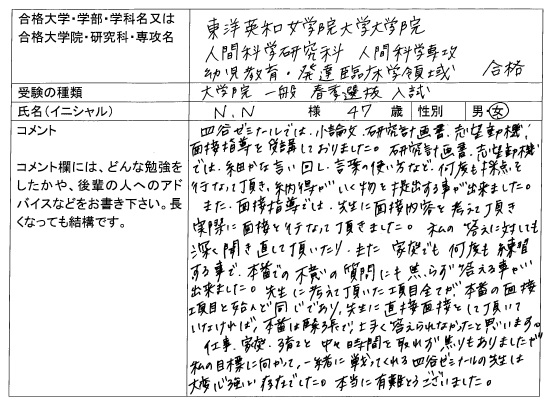 合格大学・学部・学科名又は
合格大学院・研究科・専攻名
東洋英和女学院大学大学院
人間科学研究科 人間科学専攻
幼児教育・発達臨床学領域 合格
受験の種類
大学院 一般 春季選抜 入試
氏名(イニシャル)
N.N 様 47 歳 性別 男・女
コメント
コメント欄には、どんな勉強を
したかや、後輩の人へのアド
バイスなどをお書き下さい。長
くなっても結構です。
四谷ゼミナールでは、小論文、研究計画書、志望動機、
面接指導を受講しておりました。研究計画書、志望動機
では、細かな言い回し、言葉の使い方など、何度も採点を
行なって頂き、納得がいく物を提出する事が出来ました。
また、面接指導では、先生に面接内容を考えて頂き
実際に面接を行なって頂きました。私の答えに対しても
深く聞き直して頂いたり、また 家族でも何度も練習
する事で、本番での不意の質問にも焦らず答える事が
出来ました。先生に考えて頂いた項目全てが、本番の面接
項目と殆んど同じであり、先生に直接面接をして頂いて
いなければ、本番は緊張で、上手く答えられなかったと思います。
仕事、家庭、子育てと中々時間を取れず焦りもありましたが
私の目標に向かて、一緒に戦ってくれる四谷ゼミナールの先生は
大変心強い存在でした。本当に有難とうございました。